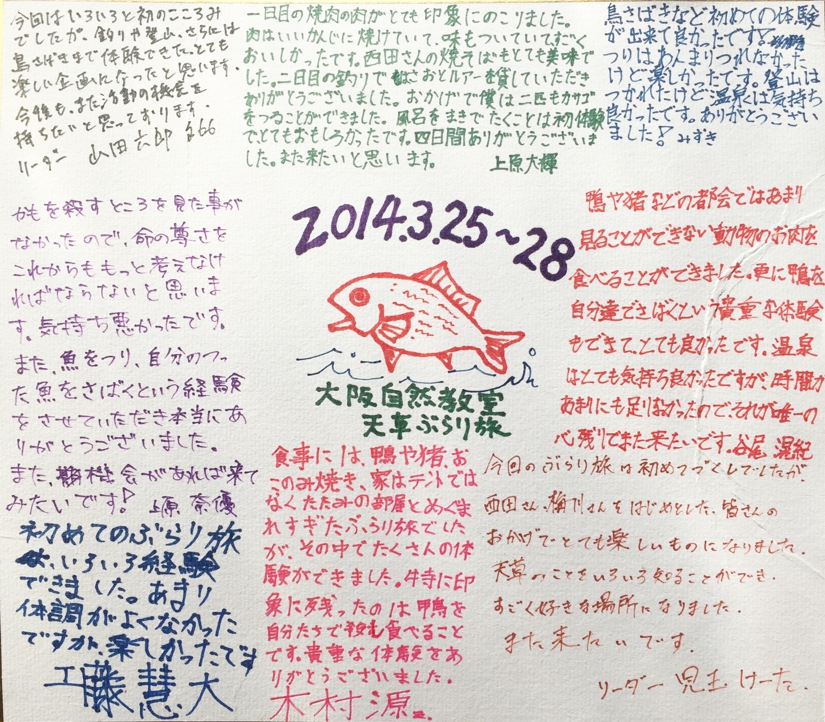 今回はいろいろと初のこころみ
でしたが、釣りや登山、さらには
鳥さばきまで体験できた、とても
楽しい企画になったと思います。
今後も、また活動の機会を
持ちたいと思っております。
リーダー 山田六郎 66
一日目の焼肉の肉がとても印象にのこりました。
肉はいいかんじに焼けていて、味もついていてすごく
おいしかったです。西田さんの焼そばもとても美味で
した。二日目の釣りではさおとルアーを貸していただき
ありがとうございました。おかげで僕は二匹もカサゴ
をつることができました。風呂をまきでたくことは初体験
でとてもおもしろかったです。四日間ありがとうございま
した。また来たいと思います。 上原大輝
鳥さばきなど初めての体験
が出来て良かったです!
つりはあんまりつれなかった
けど楽しかったです。登山は
つかれたけど温泉は気持ち
良かったです。ありがとうござい
ました! みずき
かもを殺すところを見た事が
なかったので、命の尊さを
これからももっと考えなけ
ればならないと思いま
す。気持ち悪かったです。
また、魚をつり、自分のつっ
た魚をさばくという経験
をさせていただき本当にあ
りがとうございました。
また、機会があれば来て
みたいです! 上原 奈優
2014.3.25~28
大阪自然教室
天草ぶらり旅
鴨や猪などの都会ではあまり
見ることができない動物のお肉を
食べることができました。更に鴨を
自分達でさばくという貴重な体験
もできて、とても良かったです。温泉
はとても気持ち良かったですが、時間が
あまりにも足りなかったのでそれが唯一の
心残りでまた来たいです。谷尾 滉紀
初めてのぶらり旅
は、いろいろ経験
できました。あまり
体調がよくなかった
ですが、楽しかったです
工藤慧大
食事には、鴨や猪、お
このみ焼き、家はテントでは
なくたたみの部屋とめぐま
れすぎたぶらり旅でした
が、その中でたくさんの体
験ができました。特に印
象に残ったのは鴨を
自分たちで殺し食べること
です。貴重な体験をあ
りがとうございました。
木村源
今回のぶらり旅は初めてづくしでしたが、
西田さん、梅川さんをはじめとした、皆さんの
おかげでとても楽しいものになりました。
天草のことをいろいろ知ることができ、
すごく好きな場所になりました。
また来たいです。
リーダー 児玉 けーた.